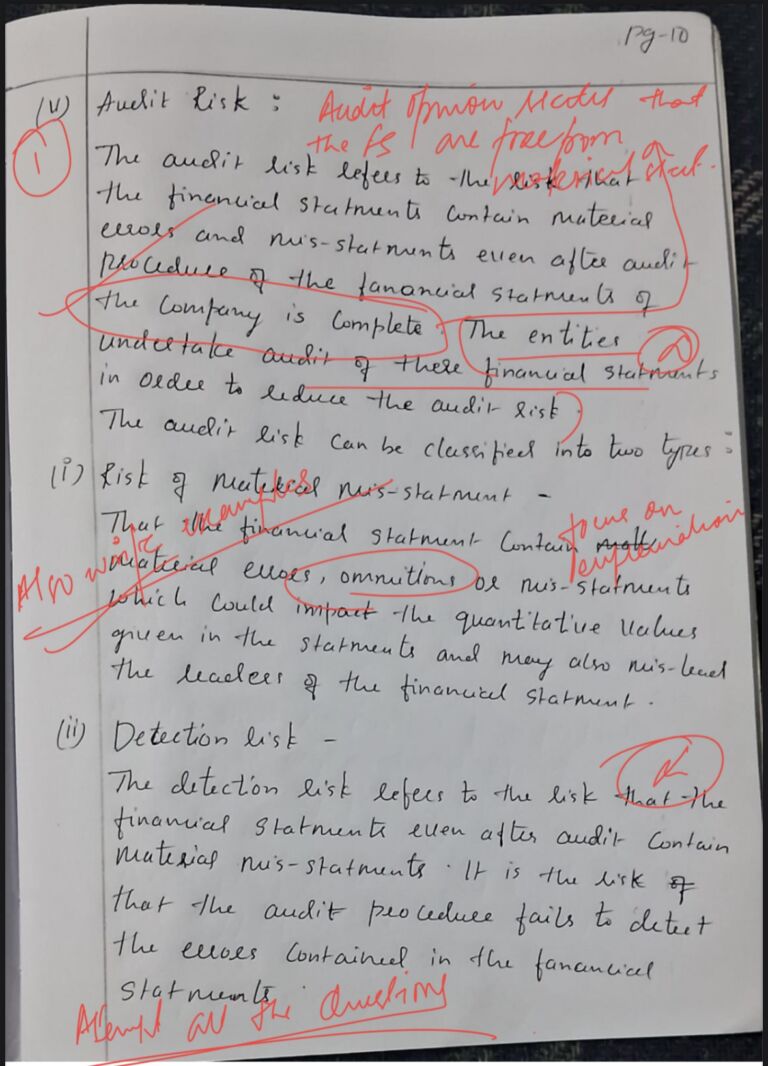 pg-10
(v) Audit Risk :
Audit opinion states that
the FS are free from
material stat.
1
The audit risk refers to the risk that
the financial statments contain material
errors and mis-statments even after audit
procedure of the fanancial statments of
the company is complete. The entities
2
undertake audit of these financial statments
in order to reduce the audit risk.
The audit risk can be classified into two types:
(i) Risk of material mis-statment -
Also write examples
focus on
explanation
That the financial statment contain
material errors, omnutions or mis-statments
which could impact the quantitative values
given in the statments and may also mis-lead
the readers of the financial statment.
(ii) Detection risk -
The detection risk refers to the risk that the
financial statments even after audit contain
material mis-statments. It is the risk of
that the audit procedure fails to detect
the errors contained in the fanancial
statments.
Attempt all the questions